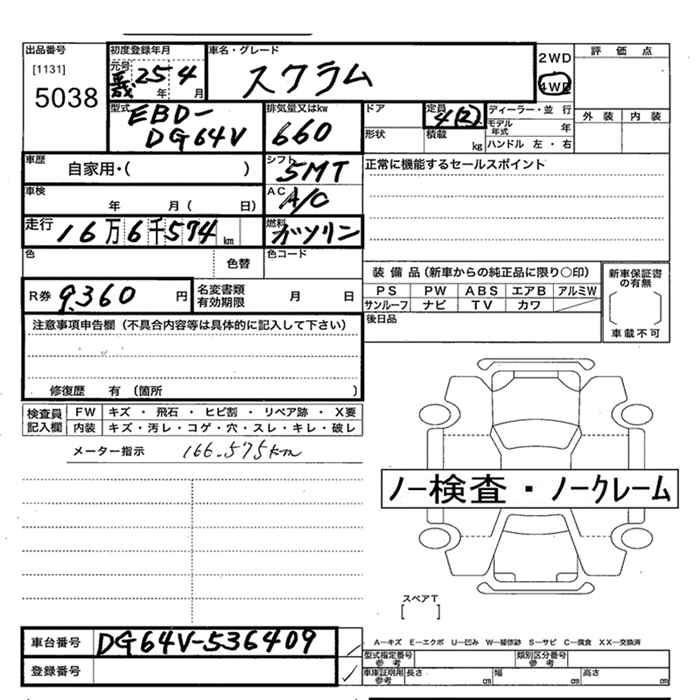 出品番号 初度登録年月 車名・グレード
[1131] 5038
元号 25 年 4 月
スクラム
2WD
4WD
評価点
外装 内装
型式 EBD-
DG64V
排気量又はkw 660
ドア
形状
定員 4(2)
積載 kg
ディーラー・並行
モデル年式 年
ハンドル 左・右
車歴 自家用・( )
シフト 5MT
正常に機能するセールスポイント
車検 年 月( 日)
AC A/C
走行 16万6千574km
燃料 ガソリン
色 色替 色コード
装備品(新車からの純正品に限り○印)
PS PW ABS エアB アルミW
サンルーフ ナビ TV カワ
新車保証書の有無
車載不可
R券 9,360 円
名変書類有効期限 月 日
後日品
注意事項申告欄(不具合内容等は具体的に記入して下さい)
修復歴 有 (箇所 )
検査員記入欄
FW キズ・飛石・ヒビ割・リペア跡・X要
内装 キズ・汚レ・コゲ・穴・スレ・キレ・破レ
メーター指示 166.575km
ノー検査・ノークレーム
スペアT
[ ]
車台番号 DG64V-536409
登録番号
A-キズ E-エクボ U-凹み W-補修跡 S-サビ C-腐食 XX-交換済
型式指定番号 参考 類別区分番号 参考
車庫証明用 参考 長さ cm 幅 cm 高さ cm